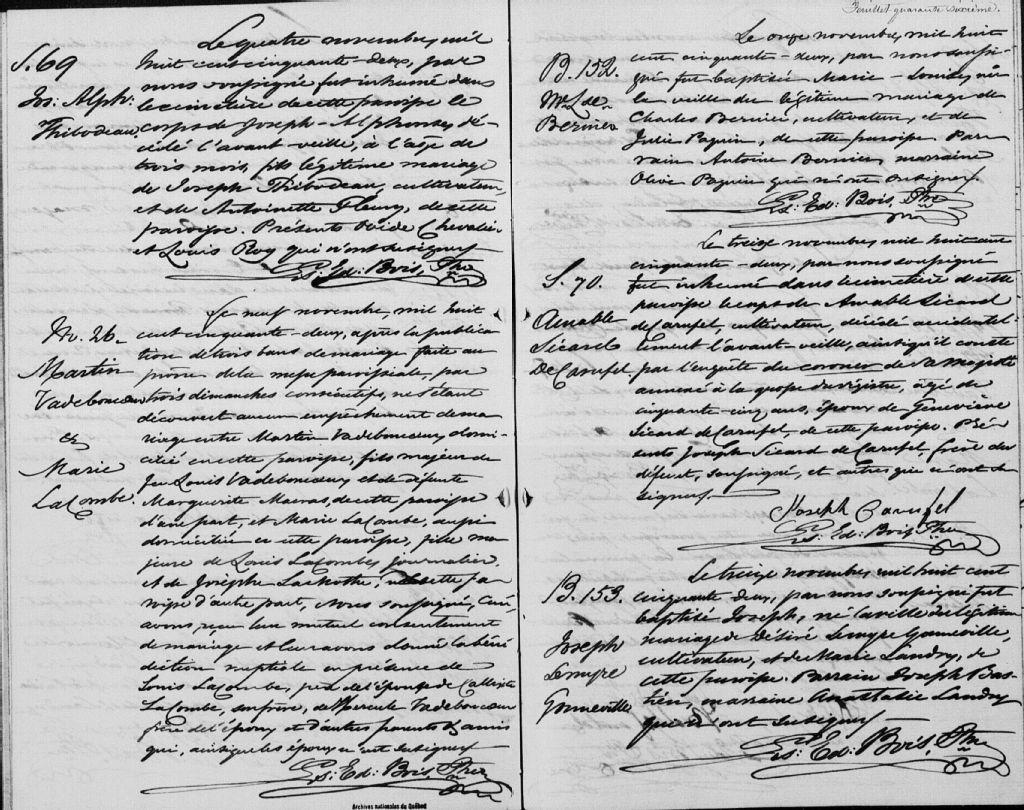 S. 69
Jos: Alph:
Thibodeau
Le quatre novembre, mil
huit cent cinquante-deux, par
nous soussigné fut inhumé dans
le cimetière de cette paroisse le
corps de Joseph-Alphonse, dé-
cédé l'avant-veille, à l'âge de
trois mois, fils légitime mariage
de Joseph Thibodeau, cultivateur,
et de Antoinette Fleury, de cette
paroisse. Présents Ovide Chevalier
et Louis Roy qui n'ont su signer
Ls: Ed: Bois, Ptre
M. 26
Martin
Vadeboncoeur
et
Marie
LaCombe.
Le neuf novembre, mil huit
cent cinquante-deux, après la publica
tion de trois bans de mariage faite au
prône de la messe paroissiale, par
trois dimanches consécutifs, ne s'étant
découvert aucun empêchement de ma
riage entre Martin Vadeboncoeur, domi-
cilié en cette paroisse, fils majeur de
feu Louis Vadeboncoeur et de défunte
Marguerite de cette paroisse
d'une part, et Marie LaCombe, aussi
domiciliée en cette paroisse, fille ma
jeure de Louis LaCombe, journalier
et de Josephe de cette pa
roisse d'autre part, Nous soussigné, Curé,
avons reçu leur mutuel consentement
de mariage et leur avons donné la béné
diction nuptiale en présence de
Louis LaCombe, père de l'épouse de Callixte
LaCombe, son frère, de Hercule Vadeboncoeur
frère de l'époux et d'autres parents & amis
qui, ainsi que les époux n'ont su signer
Ls: Ed: Bois, Ptre
Archives nationales du Québec
Feuillet quarante sixième.
B. 152.
M. L. de
Bernier
Le onze novembre, mil huit
cent cinquante-deux, par nous soussi-
gné fut baptisée Marie-Louise, née
la veille du légitime mariage de
Charles Bernier, cultivateur, et de
Julie Paquin, de cette paroisse. Par
rain Antoine Bernier, marraine
Olive Paquin qui n'ont su signer
Ls: Ed: Bois, Ptre
S. 70.
Amable
Sicard
De Carufel
Le treize novembre, mil huit cent
cinquante-deux, par nous soussigné
fut inhumé dans le cimetière de cette
paroisse le corps de Amable Sicard
de Carufel, cultivateur, décédé accidentel-
lement l'avant-veille, ainsi qu'il conste
par l'enquête du coroner de Sa Majesté
annexé à la du registre, âgé de
cinquante-cinq ans, époux de Geneviève
Sicard de Carufel, de cette paroisse. Pré
sents Joseph Sicard de Carufel, frère du
défunt, soussigné, et autres qui n'ont su
signer
Joseph Carufel
Ls: Ed: Bois, Ptre
B. 153.
Joseph
Lemyre
Gonneville
Le treize novembre, mil huit cent
cinquante deux, par nous soussigné fut
baptisé Joseph, né la veille du légitime
mariage de Désiré Lemyre Gonneville,
cultivateur, et de Marie Landry, de
cette paroisse. Parrain Joseph Bas-
tien, marraine Anastasie Landry
qui n'ont su signer
Ls: Ed: Bois, Ptre